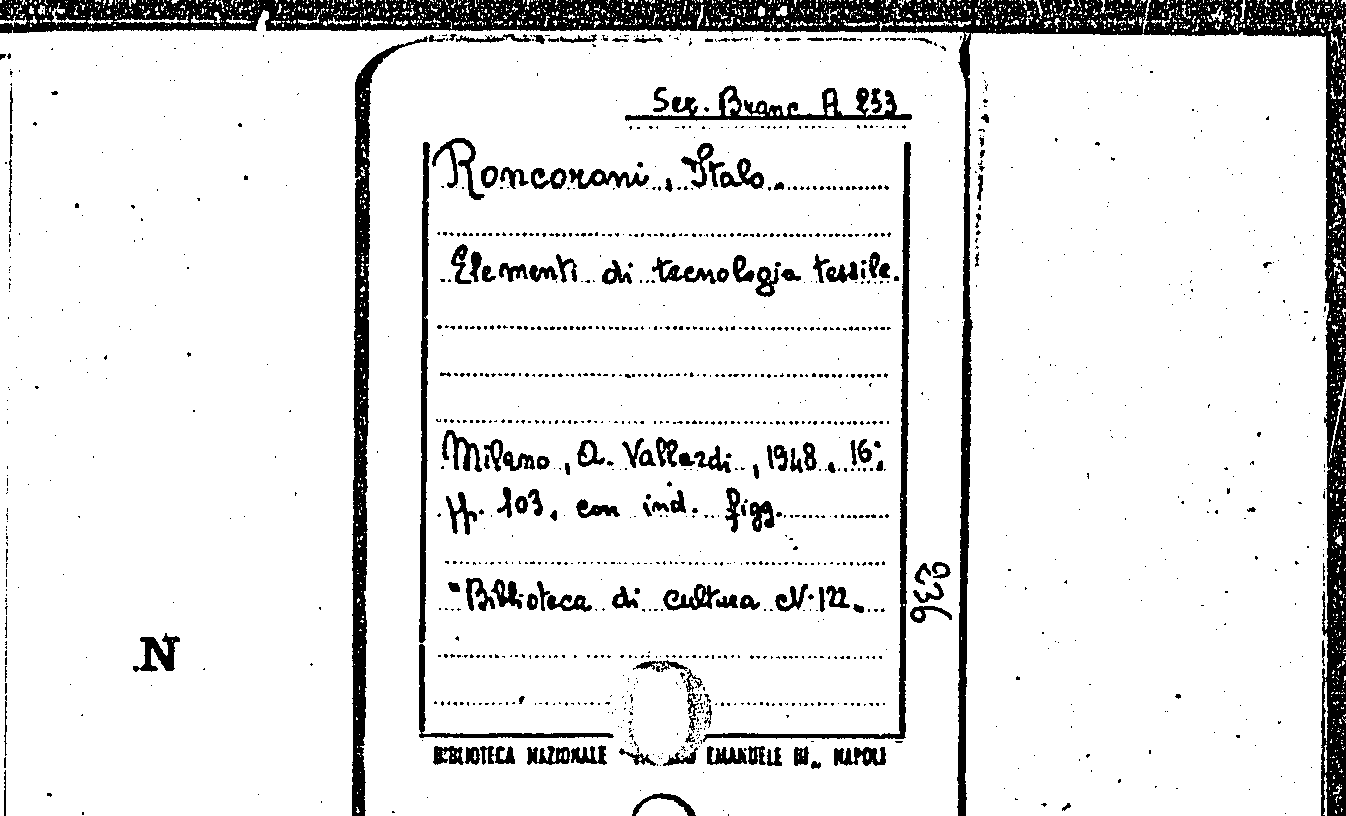 Sez. Branc. A 253
Roncorani, Italo.
Elementi di tecnologia tessile.
Milano, A. Vallardi, 1948. 16°.
pp. 103, con ind. figg.
"Biblioteca di cultura N. 122.
236
N
BIBLIOTECA NAZIONALE EMANUELE III„ NAPOLI